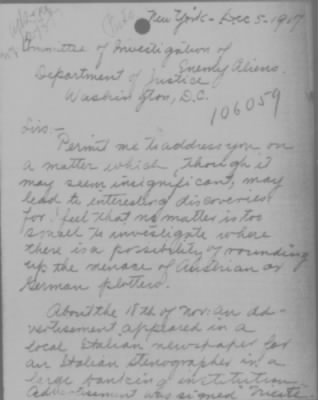 New York - Dec 5 - 1917
Committee of Investigation of
Enemy Aliens
Department of Justice
Washington, D.C.
106059
Sirs:-
Permit me to address you on
a matter which, though it
may seem insignificant, may
lead to interesting discoveries
for I feel that no matter is too
small to investigate where
there is a possibility of rounding
up the menace of Austrian or
German plotters.
About the 18th of Nov. an ad-
vertisement appeared in a
local Italian newspaper for
an Italian stenographer in a
large banking institution
Advertisement was signed "Trieste.